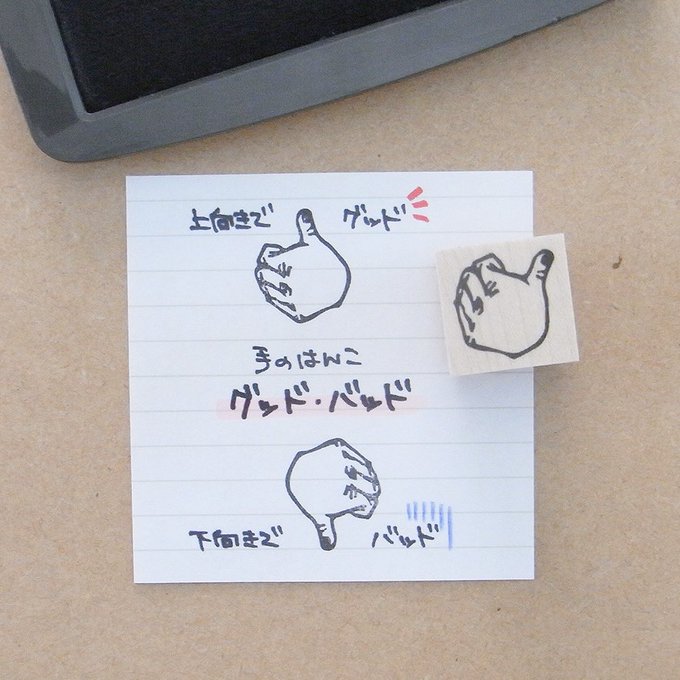 上向きで グッド
手のはんこ
グッド・バッド
下向きで バッド